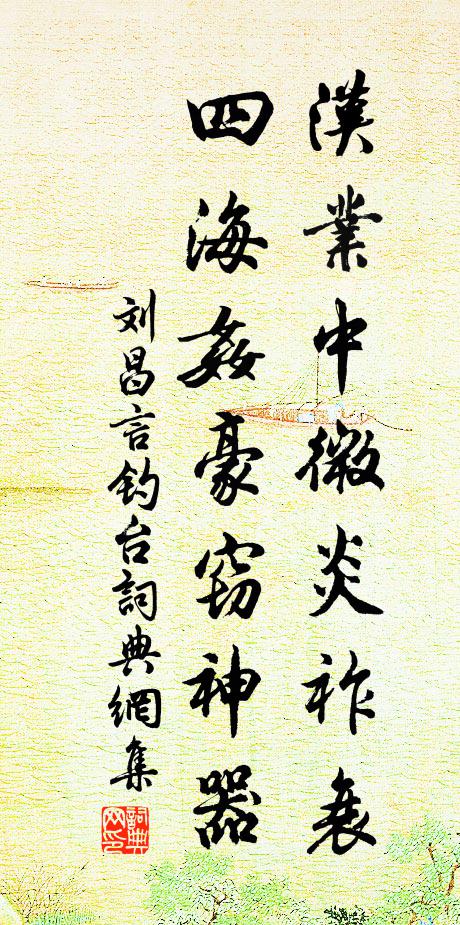 漢業中微炎祚衰
四海姦豪窃神器
刘昌言钓台詞典網集
詞典網印